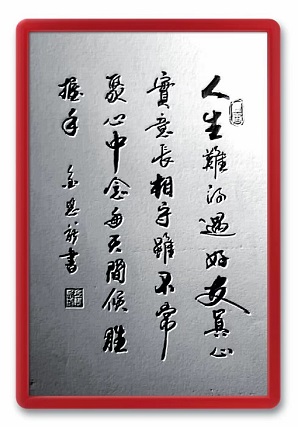 人生難得遇好友真心
實意長相守雖不常
聚心中念每天問候勝
握手 金思祥書